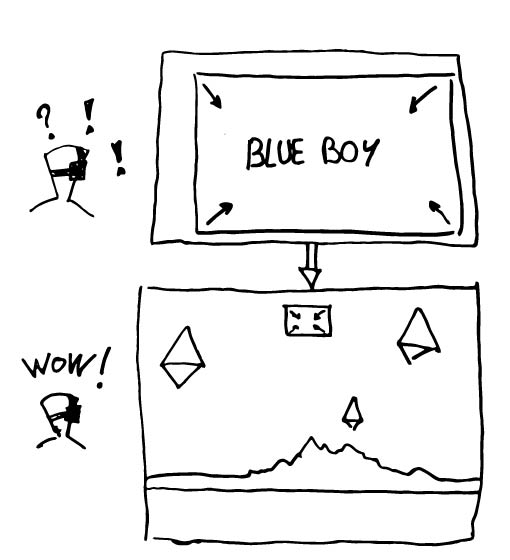 ? ! !
BLUE BOY
WOW!